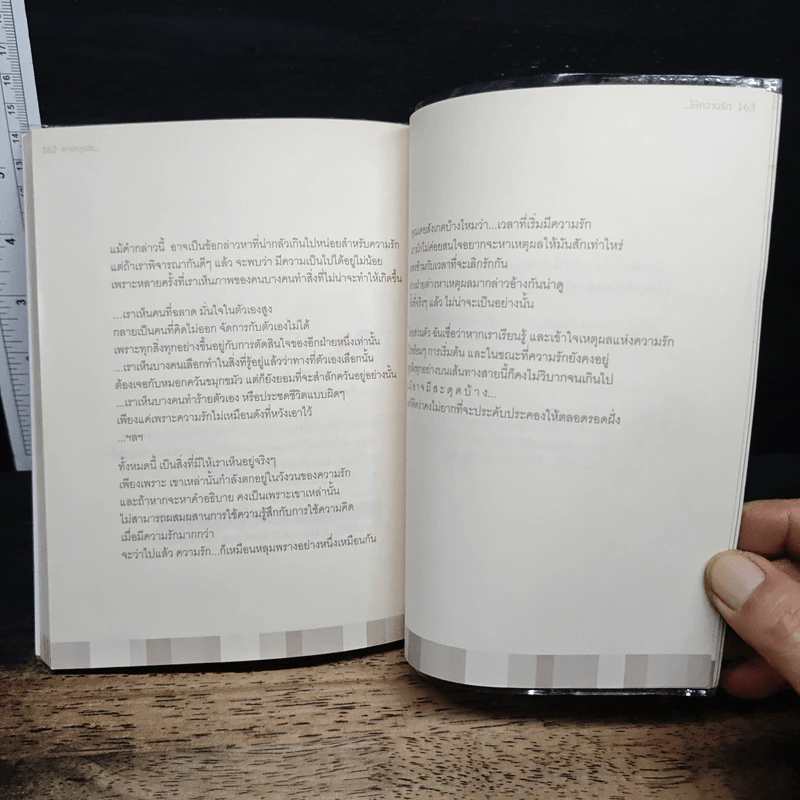 162 หาเหตุผล...
แม้คำกล่าวนี้ อาจเป็นข้อกล่าวหาที่น่ากลัวเกินไปหน่อยสำหรับความรัก
แต่ถ้าเราพิจารณากันดีๆ แล้ว จะพบว่า มีความเป็นไปได้อยู่ไม่น้อย
เพราะหลายครั้งที่เราเห็นภาพของคนบางคนทำสิ่งที่ไม่น่าจะทำให้เกิดขึ้น
...เราเห็นคนที่ฉลาด มั่นใจในตัวเองสูง
กลายเป็นคนที่คิดไม่ออก จัดการกับตัวเองไม่ได้
เพราะทุกสิ่งทุกอย่างขึ้นอยู่กับการตัดสินใจของอีกฝ่ายหนึ่งเท่านั้น
...เราเห็นบางคนเลือกทำในสิ่งที่รู้อยู่แล้วว่าทางที่ตัวเองเลือกนั้น
ต้องเจอกับหมอกควันขมุกขมัว แต่ก็ยังยอมที่จะสำลักควันอยู่อย่างนั้น
...เราเห็นบางคนทำร้ายตัวเอง หรือประชดชีวิตแบบผิดๆ
เพียงแค่เพราะความรักไม่เหมือนดังที่หวังเอาไว้
...ฯลฯ
ทั้งหมดนี้ เป็นสิ่งที่มีให้เราเห็นอยู่จริงๆ
เพียงเพราะ เขาเหล่านั้นกำลังตกอยู่ในวังวนของความรัก
และถ้าหากจะหาคำอธิบาย คงเป็นเพราะเขาเหล่านั้น
ไม่สามารถผสมผสานการใช้ความรู้สึกกับการใช้ความคิด
เมื่อมีความรักมากกว่า
จะว่าไปแล้ว ความรัก...ก็เหมือนหลุมพรางอย่างหนึ่งเหมือนกัน
...ให้ความรัก 163
คุณเคยสังเกตบ้างไหมว่า...เวลาที่เริ่มมีความรัก
เรามักไม่ค่อยสนใจอยากจะหาเหตุผลให้มันสักเท่าไหร่
ตรงข้ามกับเวลาที่จะเลิกรักกัน
ต่างฝ่ายต่างหาเหตุผลมากล่าวอ้างกันน่าดู
แล้ว ไม่น่าจะเป็นอย่างนั้น
โดยส่วนตัว ฉันเชื่อว่าหากเราเรียนรู้ และเข้าใจเหตุผลแห่งความรัก
พร้อมๆ การเริ่มต้น และในขณะที่ความรักยังคงอยู่
ทุกอย่างบนเส้นทางสายนี้ก็คงไม่วิบากจนเกินไป
อาจมีสะดุดบ้าง...
คิดว่าคงไม่ยากที่จะประคับประคองให้ตลอดรอดฝั่ง
1
2
3
4
5
15
16
17